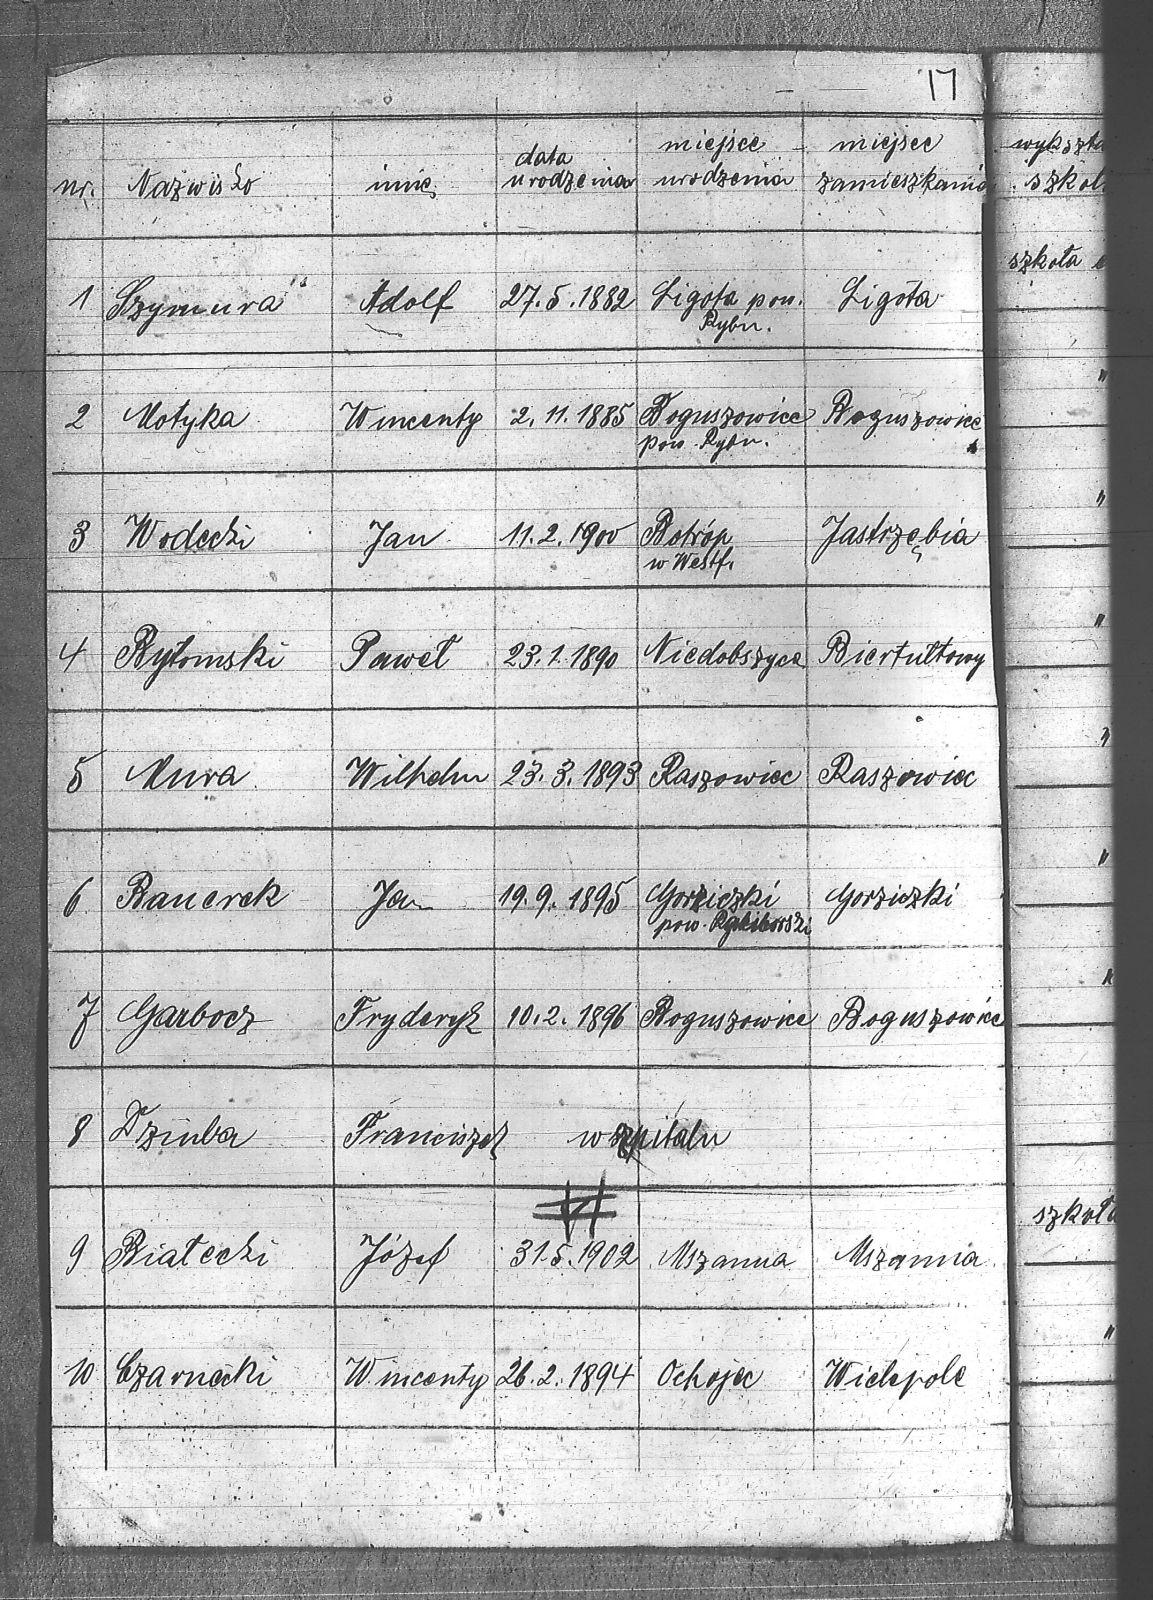 17
nr. Nazwisko imię data urodzenia miejsce urodzenia miejsce zamieszkania
szkoła
1 Szymura Adolf 27.5.1882 Ligota pow. Rybn. Ligota
2 Motyka Wincenty 2.11.1885 Boguszowice pow. Rybn. Boguszowice "
3 Wodecki Jan 11.2.1900 Botróp w Westf. Jastrzębia "
4 Bytomski Paweł 23.1.1890 Niedobszyce Biertułtowy "
5 Mura Wilhelm 23.3.1893 Raszowiec Raszowiec "
6 Banerek Jan 19.9.1895 Gorziczki pow. Gorziczki "
7 Garbocz Fryderyk 10.2.1896 Boguszowice Boguszowice "
8 Dziuba Franciszek w szpitalu
9 Białecki Józef 31.5.1902 Mszanna Mszanna szkoła
10 Czarnecki Wincenty 26.2.1894 Ochojec Wielepole "